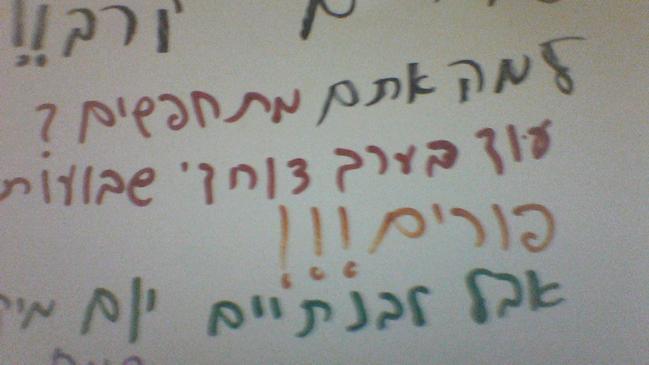 ורב!!
למה אתם מתחפשים?
עוד בערך וחצי שבועות
פורים!!!
אבל לבנתיים יום